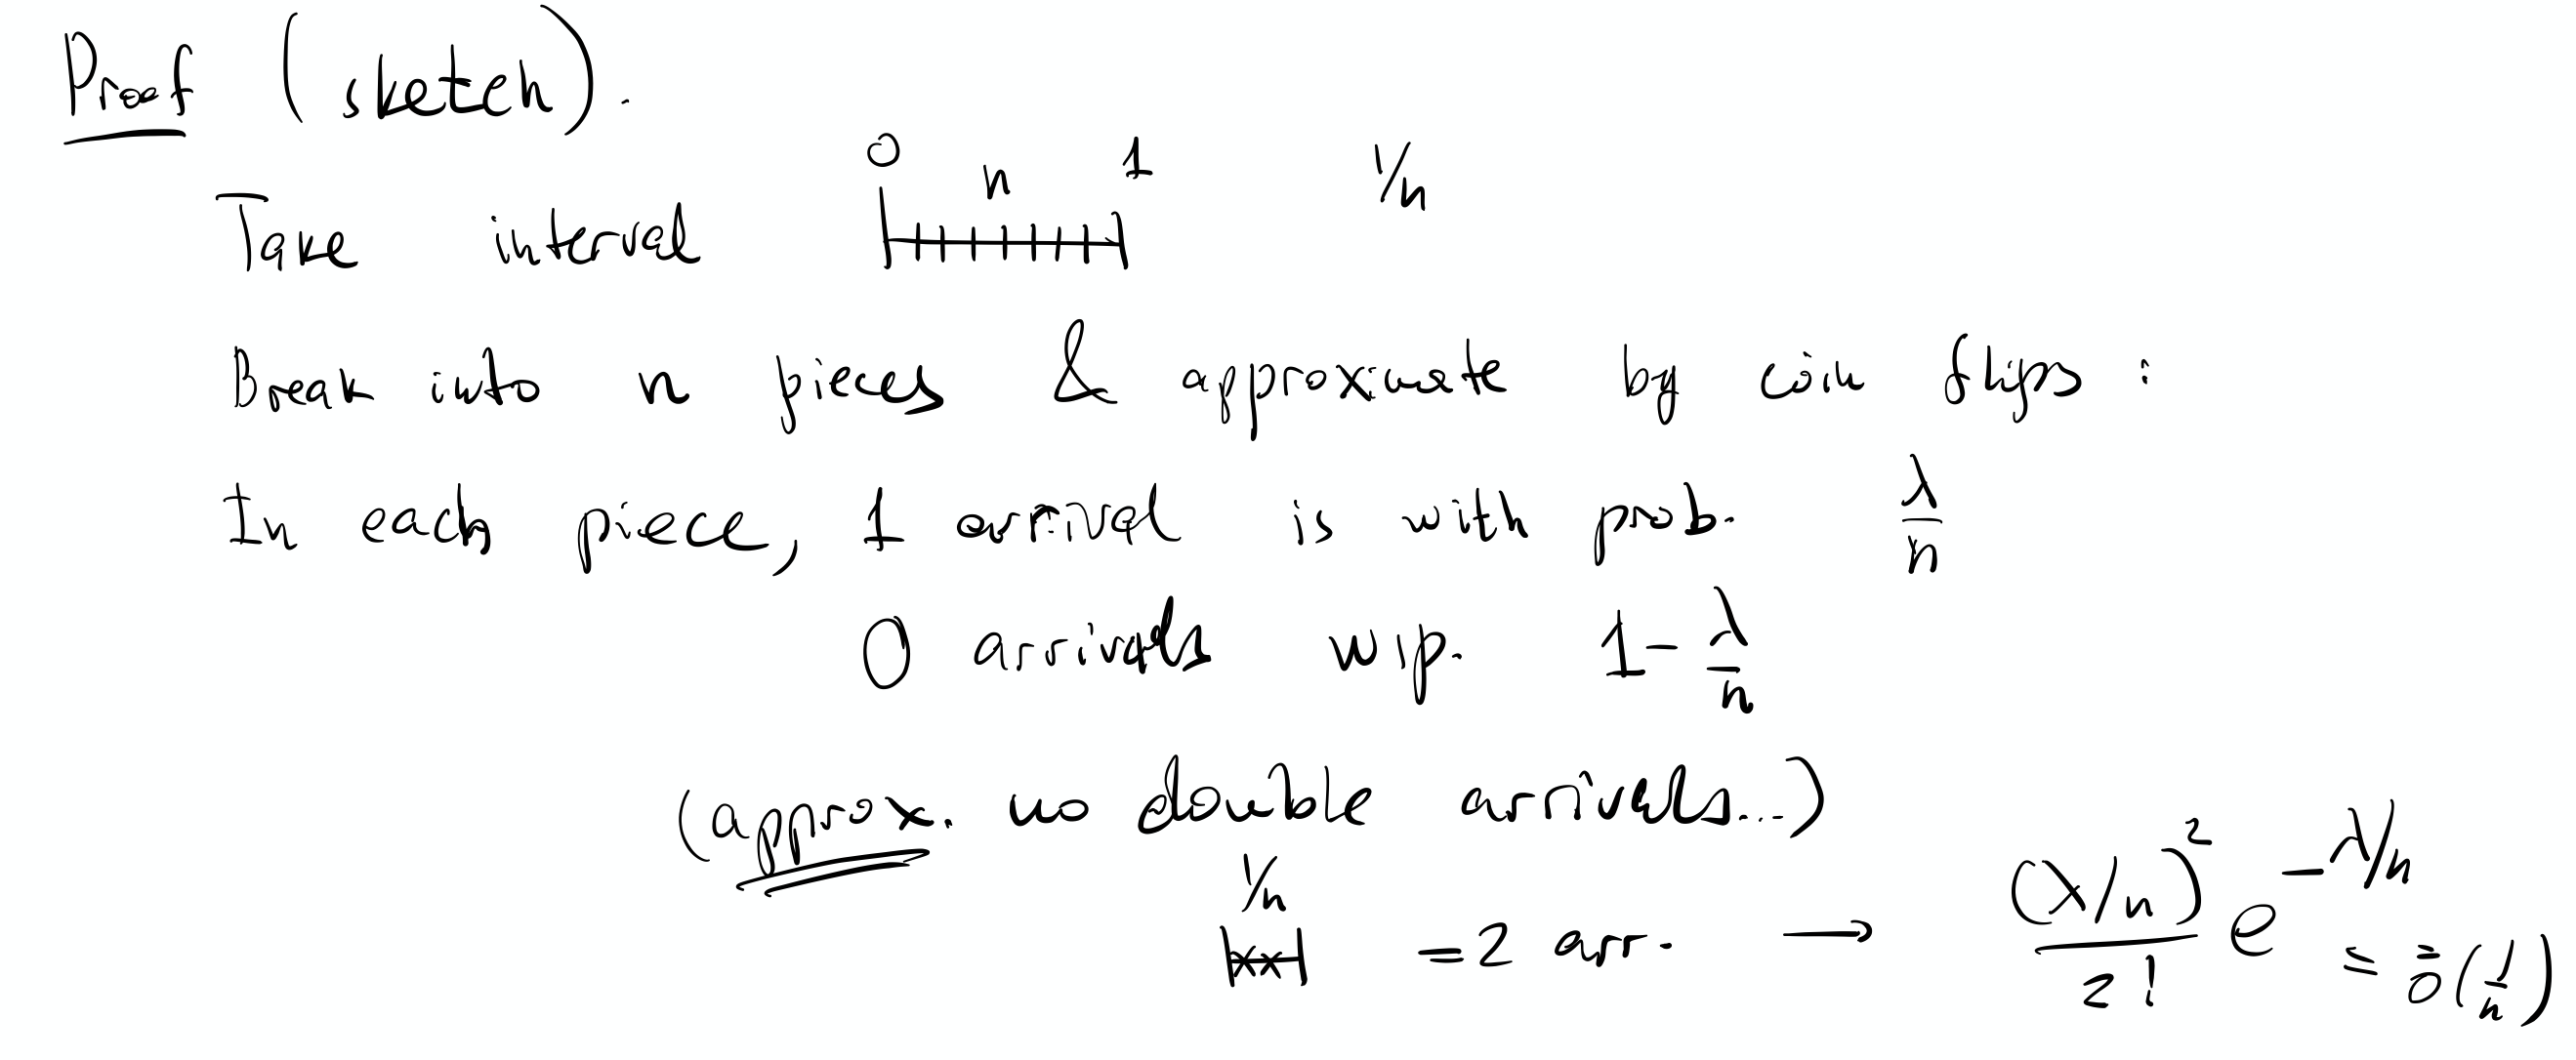 Proof (sketch).
0 n 1 1/n
Take interval
Break into n pieces & approximate by coin flips :
In each piece, 1 arrival is with prob. λ/n
0 arrivals w.p. 1 - λ/n
(approx. no double arrivals...)
1/n
= 2 arr. → (λ/n)²/2! e^{-λ/n} = ō(1/n)